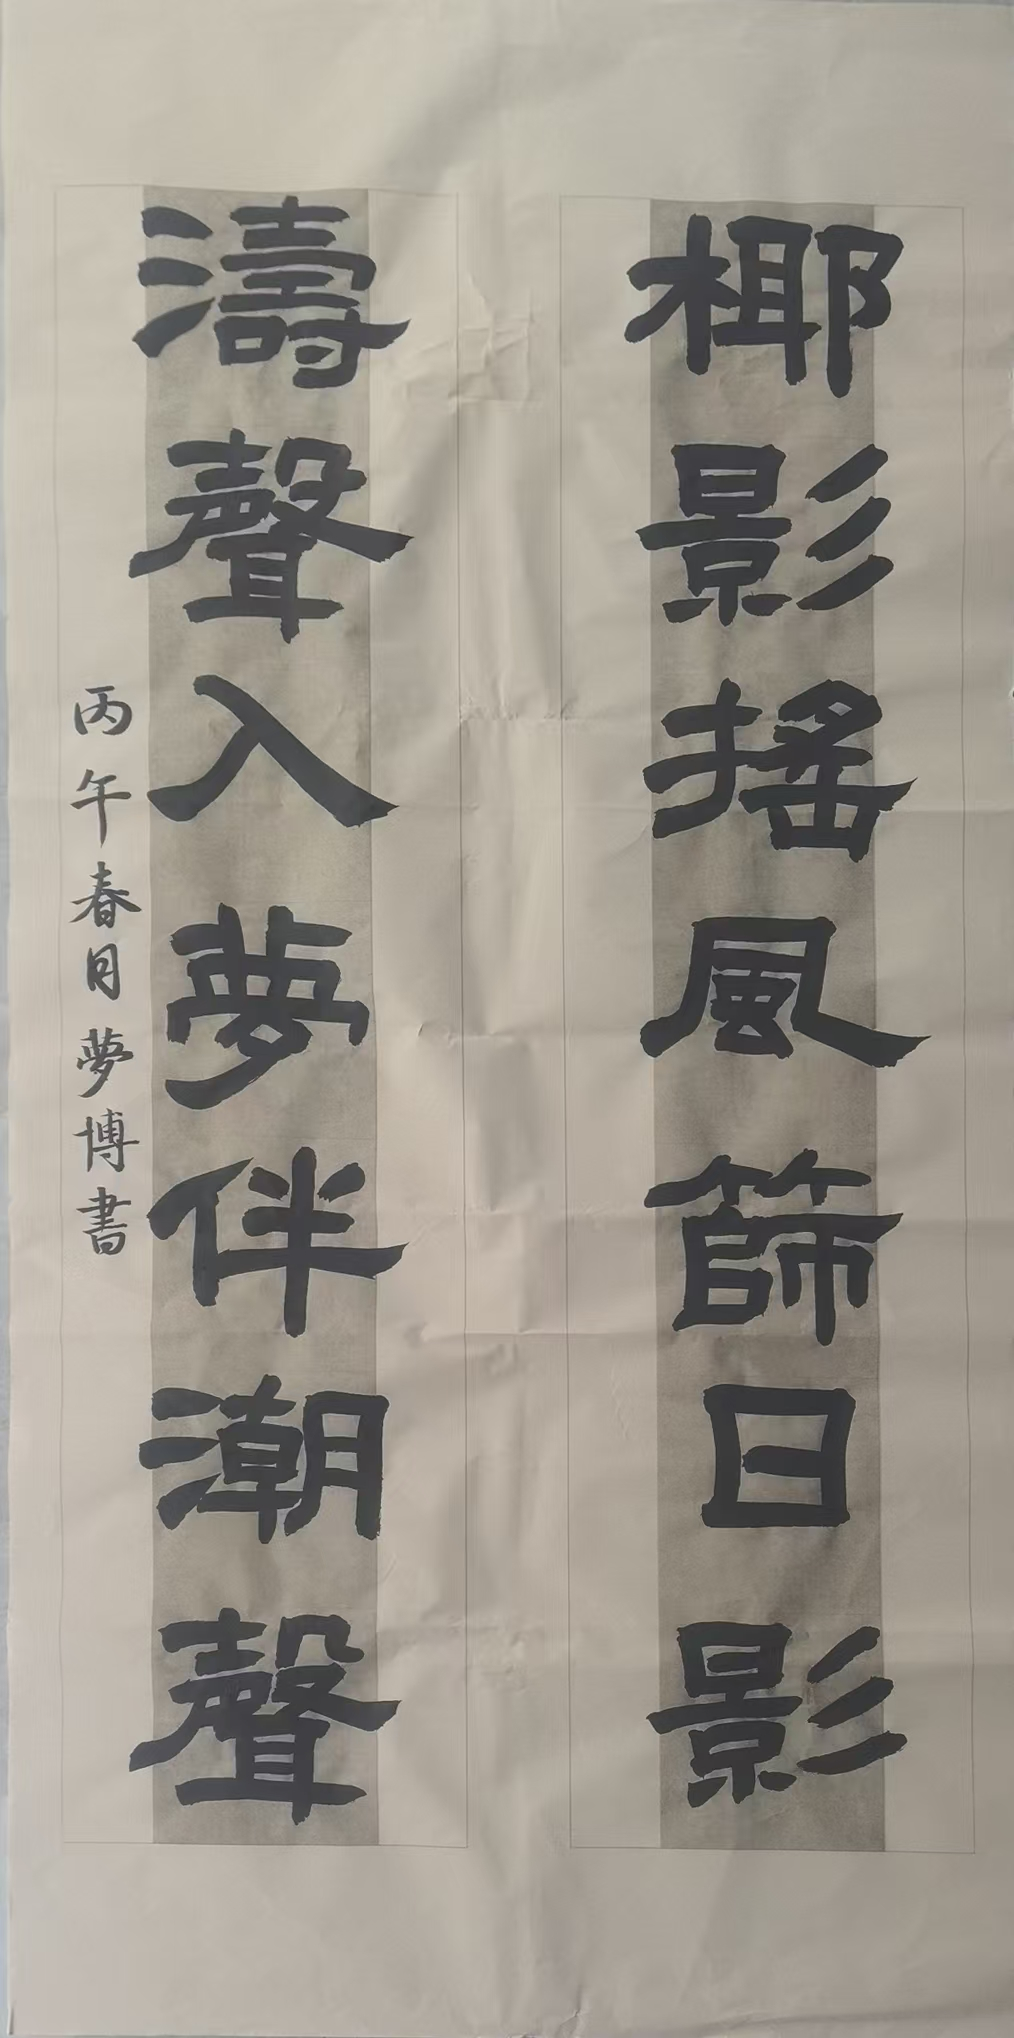 椰影搖風篩日影
濤聲入夢伴潮聲
丙午春月夢博書